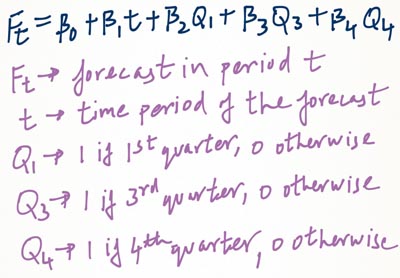 Ft = β0 + β1t + β2Q1 + β3Q3 + β4Q4
Ft → forecast in period t
t → time period of the forecast
Q1 → 1 if 1st quarter, 0 otherwise
Q3 → 1 if 3rd quarter, 0 otherwise
Q4 → 1 if 4th quarter, 0 otherwise